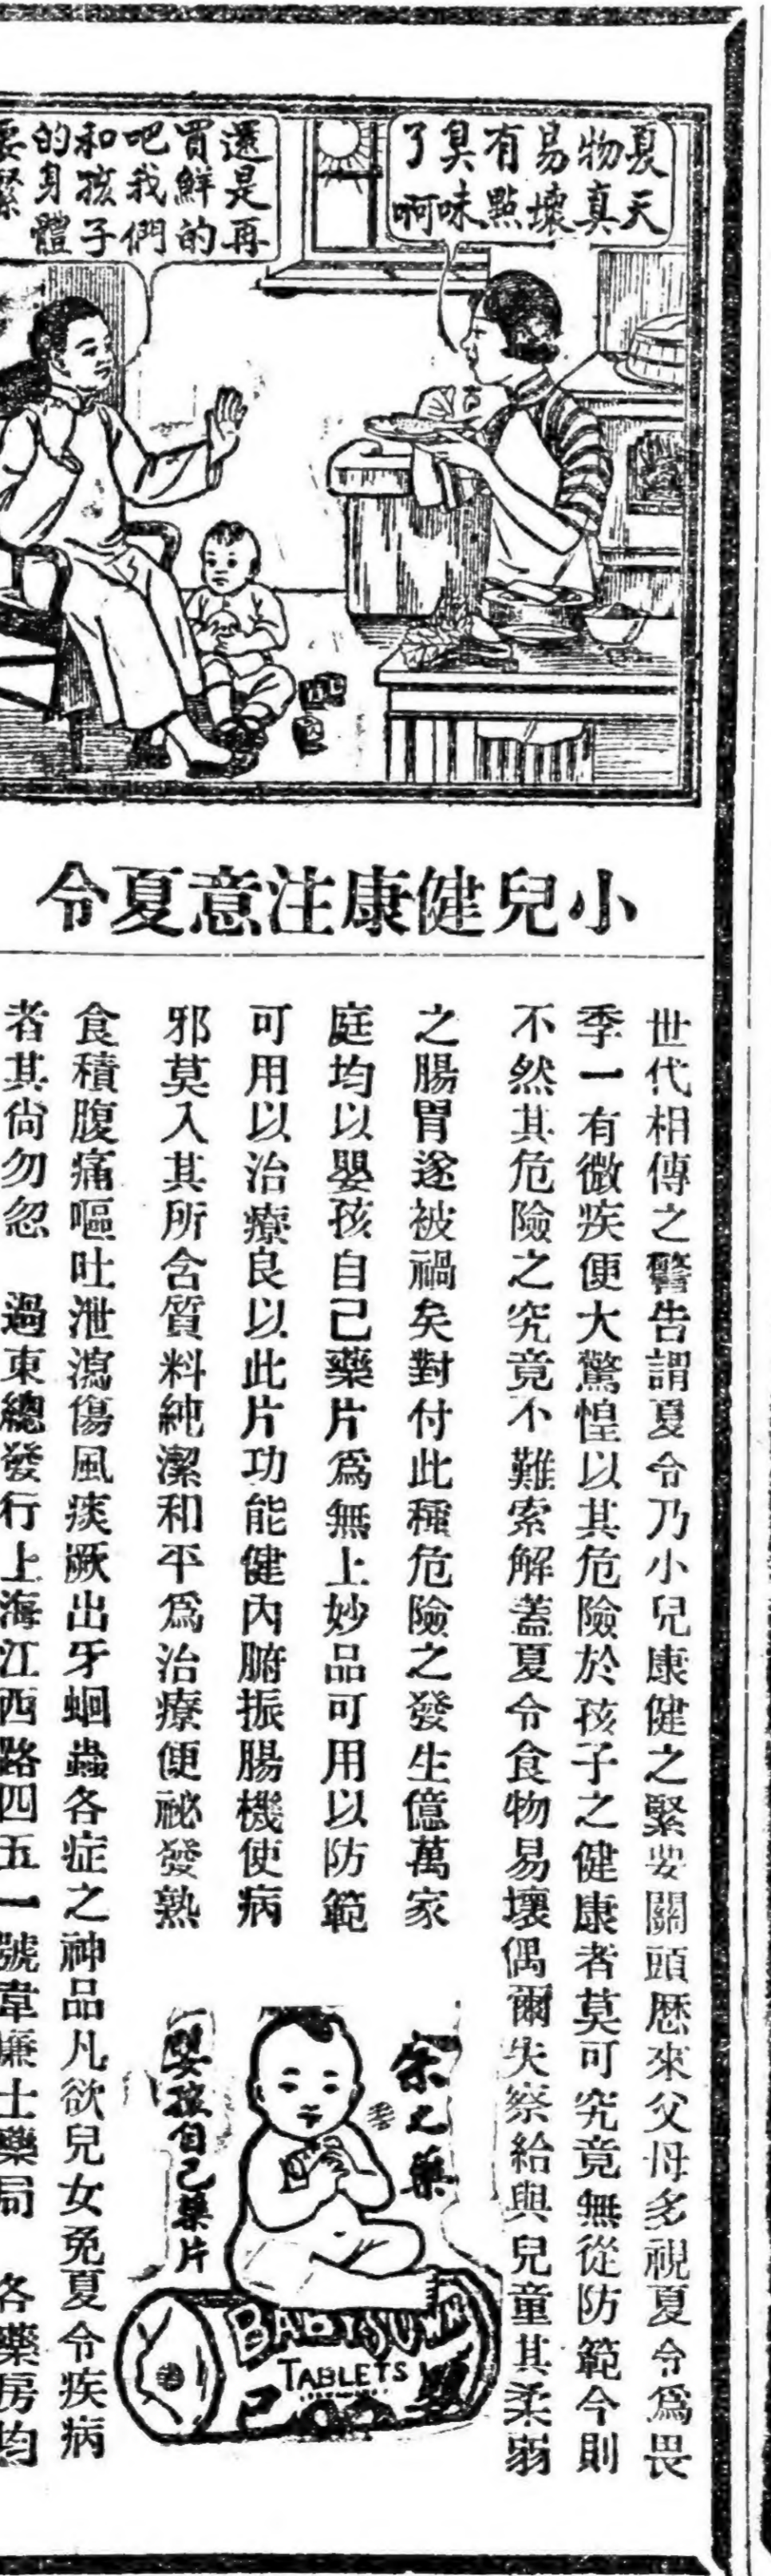 夏天
物真
易壞
有點
臭味
了啊
還是再
買鮮的
吧我們
和孩子
的身體
要緊
小兒健康注意夏令
世代相傳之警告謂夏令乃小兒康健之緊要關頭歷來父母多視夏令爲畏
季一有微疾便大驚惶以其危險於孩子之健康者莫可究竟無從防範今則
不然其危險之究竟不難索解蓋夏令食物易壞偶爾失察給與兒童其柔弱
之腸胃遂被禍矣對付此種危險之發生億萬家
庭均以嬰孩自己藥片爲無上妙品可用以防範
可用以治療良以此片功能健內腑振腸機使病
邪莫入其所含質料純潔和平爲治療便祕發熱
食積腹痛嘔吐泄瀉傷風痰厥出牙蛔蟲各症之神品凡欲兒女免夏令疾病
者其尙勿忽 過東總發行上海江西路四五一號韋廉士藥局 各藥房均
之藥
嬰孩自己藥片
BABY'S OWN
TABLETS
己